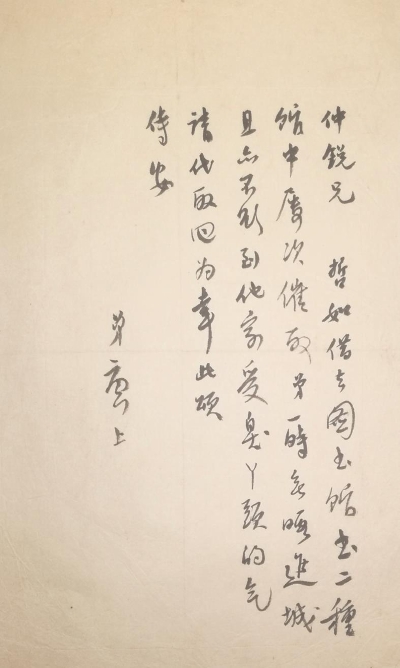 仲銳兄 哲如借去圖书館书二種
館中屡次催取弟一時無暇進城
且亦不願到他家受臭丫頭的气
請代取回为幸此頌
侍安
弟 上